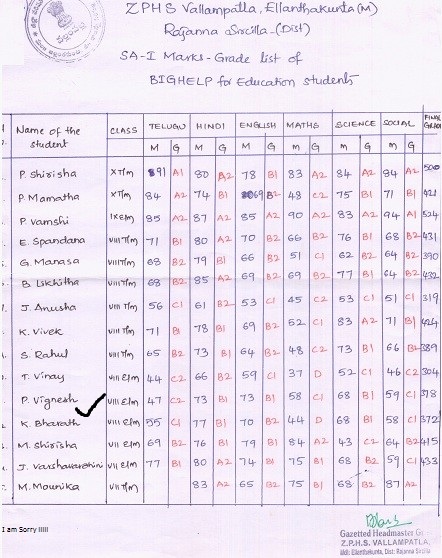 Z P H S Vallampatla, Ellanthakunta (M)
Rajanna Sircilla - (Dist)
SA-I Marks - Grade list of
BIGHELP for Education students
Name of the student CLASS TELUGU HINDI ENGLISH MATHS SCIENCE SOCIAL FINAL GRADE
M G M G M G M G M G M G
P. Shirisha X T/m 91 A1 80 A2 78 B1 83 A2 84 A2 84 A2 500
P. Mamatha X T/m 84 A2 74 B1 69 B2 48 C2 75 B1 71 B1 421
P. Vamshi IX E/m 85 A2 87 A2 85 A2 90 A2 83 A2 94 A1 524
E. Spandana VIII T/m 71 B1 80 A2 70 B2 66 B2 76 B1 68 B2 431
G. Manasa VIII T/m 68 B2 79 B1 66 B2 51 C1 62 B2 64 B2 390
B. Likhitha VIII T/m 68 B2 85 A2 69 B2 69 B2 77 B1 64 B2 432
J. Anusha VIII T/m 56 C1 61 B2 53 C1 45 C2 53 C1 51 C1 319
K. Vivek VIII T/m 71 B1 78 B1 69 B2 52 C1 83 A2 71 B1 424
S. Rahul VIII T/m 65 B2 73 B1 64 B2 48 C2 73 B1 66 B2 389
T. Vinay VIII E/m 44 C2 66 B2 59 C1 37 D 52 C1 46 C2 304
P. Vignesh VIII E/m 47 C2 73 B1 73 B1 58 C1 68 B1 59 C1 378
K. Bharath VIII E/m 55 C1 77 B1 70 B2 44 D 68 B1 58 C1 372
M. Shirisha VIII E/m 69 B2 76 B1 79 B1 84 A2 43 C2 64 B2 415
J. Varshavarshini VII E/m 77 B1 80 A2 74 B1 75 B1 68 B2 59 C1 433
M. Mounika VII T/m 83 A2 65 B2 75 B1 68 B2 87 A2
I am Sorry !!!!!
Gazetted Headmaster
Z.P.H.S. VALLAMPATLA,
Mdl: Ellanthakunta, Dist: Rajanna Sircilla